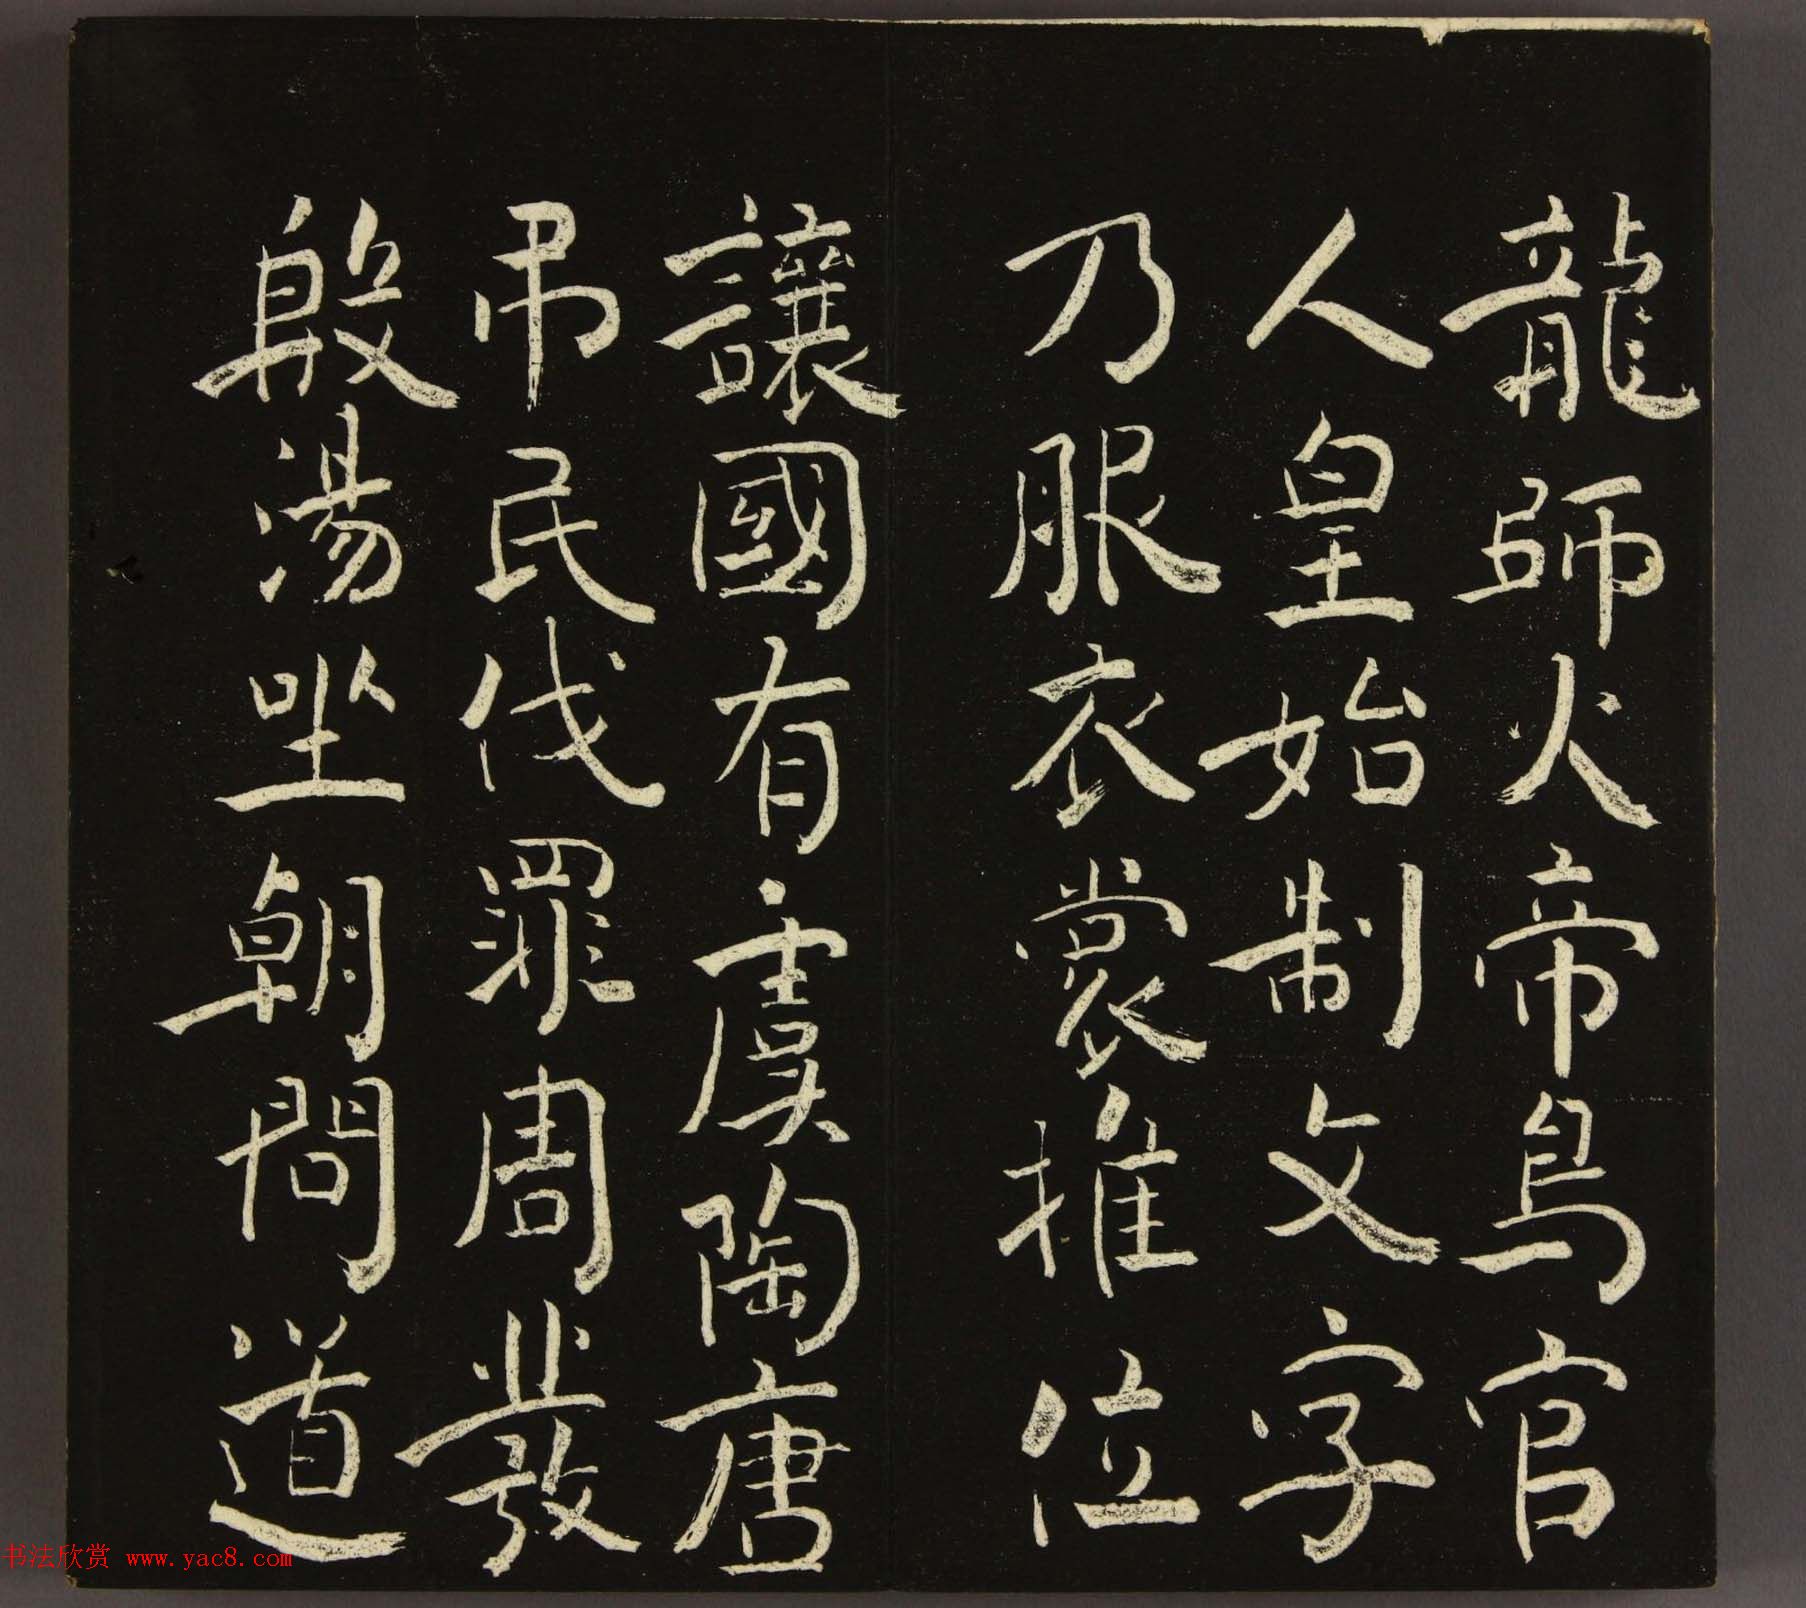 龍師火帝鳥官
人皇始制文字
乃服衣裳推位
讓國有虞陶唐
弔民伐罪周發
殷湯坐朝問道
书法欣赏 www.yac8.com